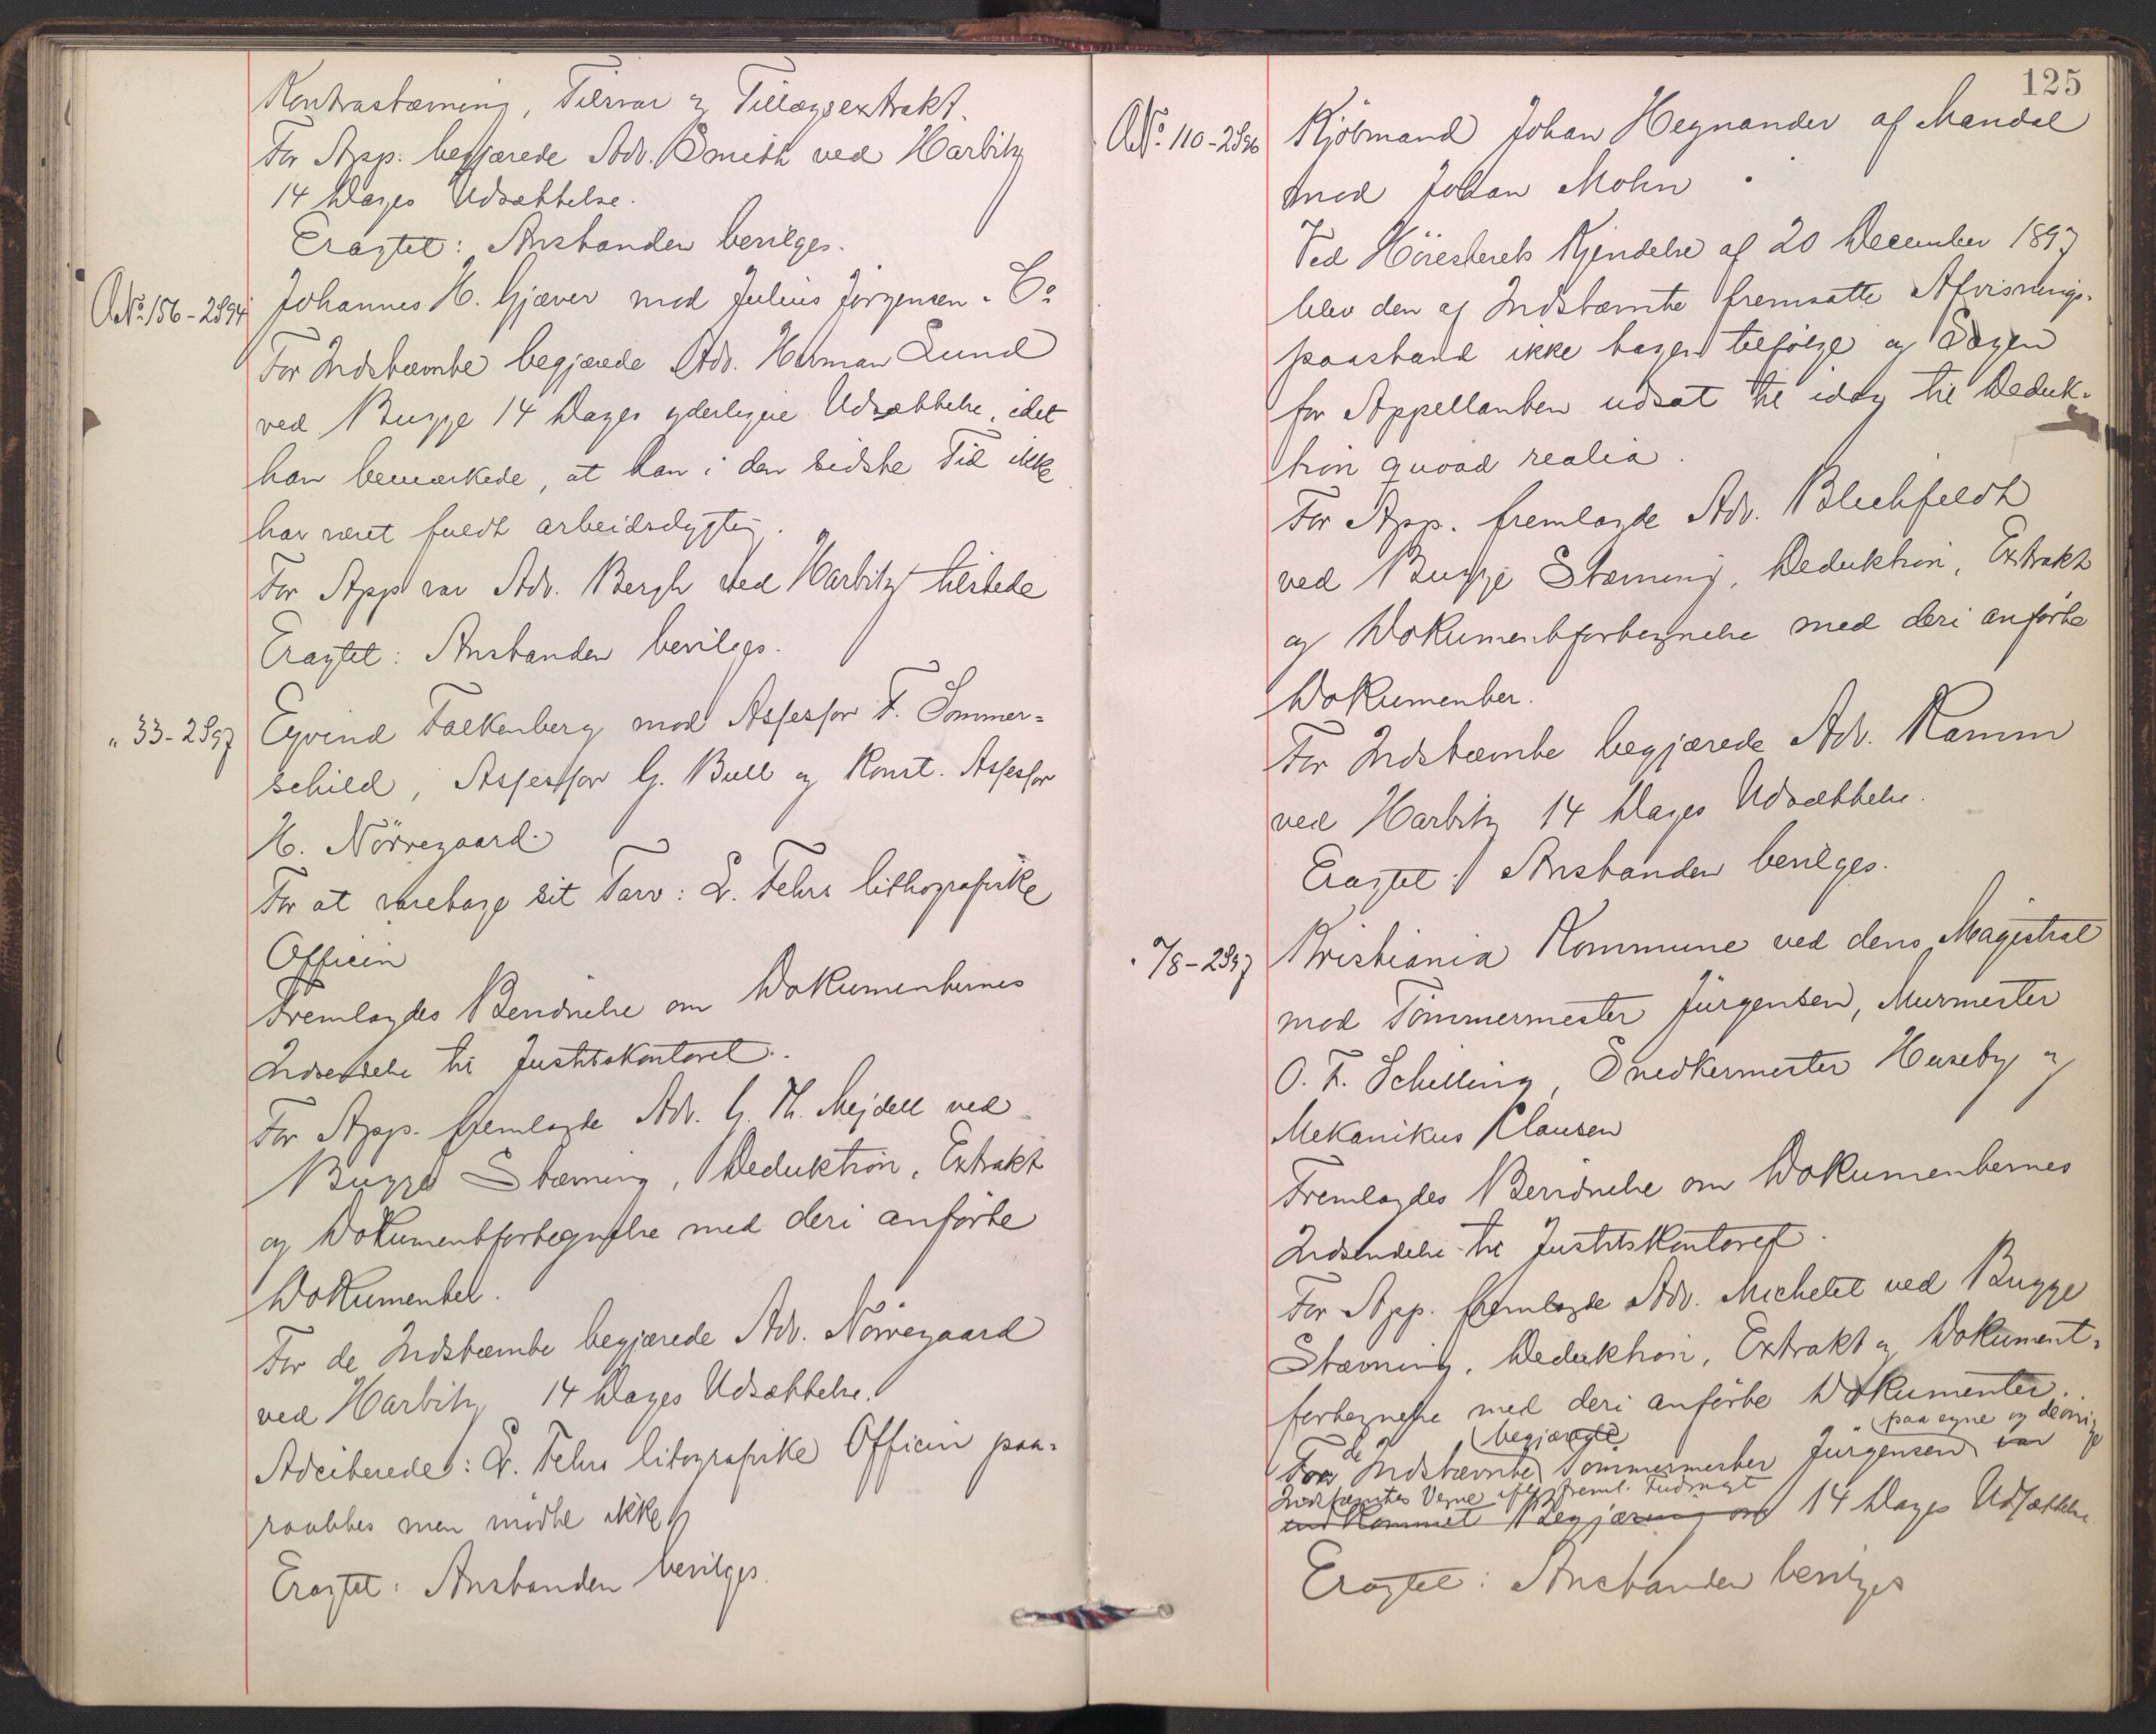 Kontrastævning, Tilsvar og Tillægsextrakt.
For App. begjærede Adv. Smith ved Harbitz
14 Dages Udsættelse.
Eragtet: Anstanden bevilges.
A No. 156 - 2S94 Johannes H. Gjæver mod Julius Jørgensen & Co
For Indstævnte begjærede Adv. Herman Lund
ved Bugge 14 Dages yderligere Udsættelse, idet
han bemærkede, at han i den sidste Tid ikke
har været fuldt arbeidsdygtig.
For App var Adv. Bergh ved Harbitz tilstede
Eragtet: Anstanden bevilges.
" 33 - 2S97 Eyvind Falkenberg mod Assessor F. Sommer=
schild, Assessor G. Bull og Konst. Assessor
H. Nörregaard.
For at varetage sit Tarv: L. Fehrs lithografiske
Officin
Fremlagdes Bevidnelse om Dokumenternes
Indsendelse til Justitskontoret.
For App. fremlagde Adv. G. Th. Mejdell ved
Bugge Stævning, Deduktion, Extrakt
og Dokumentfortegnelse med deri anförte
Dokumenter.
For de Indstævnte begjærede Adv. Nörregaard
ved Harbitz 14 Dages Udsættelse.
Adciterede: L. Fehrs litografiske Officin paa-
raabtes men mödte ikke
Eragtet: Anstanden bevilges.
125
A No. 110 - 2S96 Kjöbmand Johan Hegnander af Mandal
mod Johan Mohn
Ved Höiesterets Kjendelse af 20 December 1897
blev den af Indstævnte fremsatte Afvisnings-
paastand ikke tagen tilfölge og Sagen
for Appellanten udsat til idag til Deduk-
tion quoad realia.
For App. fremlagde Adv. Blichfeldt
ved Bugge Stævning, Deduktion, Extrakt
og Dokumentfortegnelse med deri anförte
Dokumenter.
For Indstævnte begjærede Adv. Ramm
ved Harbitz 14 Dages Udsættelse.
Eragtet: Anstanden bevilges.
2S97 Kristiania Kommune ved dens Magistrat
mod Tömmermester Jürgensen, Murmester
O. F. Schilling, Snedkermester Huseby og
Mekanikus Clausen
Fremlagdes Bevidnelse om Dokumenternes
Indsendelse til Justitskontoret.
For App. fremlagde Adv. Michelet ved Bugge
Stævning, Deduktion, Extrakt og Dokument-
fortegnelse med deri anförte Dokumenter.
begjærede paa egne og de övrige
For de Indstævnte Tömmermester Jürgensen var
Indstævntes Vegne efter freml. Fuldmagt
indkommet Begjæring om 14 Dages Udsættelse
Eragtet: Anstanden bevilges